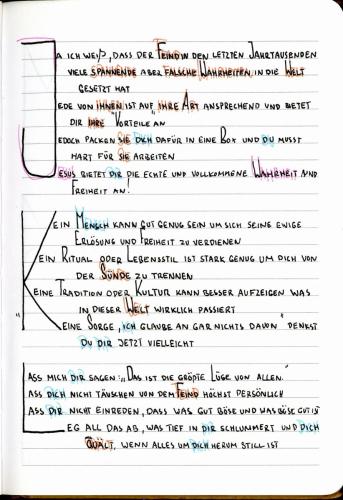 JA ICH WEIß, DASS DER FEIND IN DEN LETZTEN JAHRTAUSENDEN
VIELE SPANNENDE ABER FALSCHE WAHRHEITEN IN DIE WELT
GESETZT HAT
JEDE VON IHNEN IST AUF IHRE ART ANSPRECHEND UND BIETET
DIR IHRE "VORTEILE" AN
JEDOCH PACKEN SIE DICH DAFÜR IN EINE BOX UND DU MUSST
HART FÜR SIE ARBEITEN
JESUS BIETET DIR DIE ECHTE UND VOLLKOMMENE WAHRHEIT UND
FREIHEIT AN!
KEIN MENSCH KANN GUT GENUG SEIN UM SICH SEINE EWIGE
ERLÖSUNG UND FREIHEIT ZU VERDIENEN
KEIN RITUAL ODER LEBENSSTIL IST STARK GENUG UM DICH VON
DER SÜNDE ZU TRENNEN
KEINE TRADITION ODER KULTUR KANN BESSER AUFZEIGEN WAS
IN DIESER WELT WIRKLICH PASSIERT
"KEINE SORGE, ICH GLAUBE AN GAR NICHTS DAVON" DENKST
DU DIR JETZT VIELLEICHT
LASS MICH DIR SAGEN: "DAS IST DIE GRÖßTE LÜGE VON ALLEN."
LASS DICH NICHT TÄUSCHEN VON DEM FEIND HÖCHST PERSÖNLICH
LASS DIR NICHT EINREDEN, DASS WAS GUT BÖSE UND WAS BÖSE GUT IST
LEG ALL DAS AB, WAS TIEF IN DIR SCHLUMMERT UND DICH
QUÄLT, WENN ALLES UM DICH HERUM STILL IST